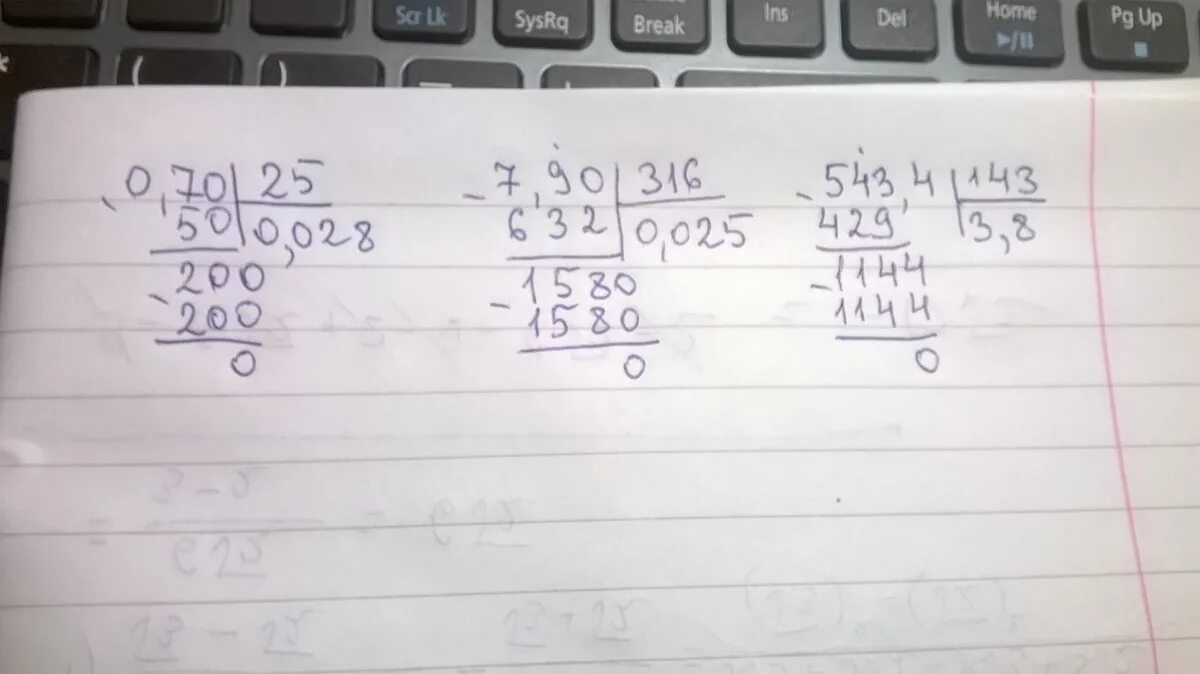 Scr Lk SysRq Break Ins Del Home Pg Up
( )
0,70 | 25 - 7,90 | 316 - 543,4 | 143
50 | 0,028 632 | 0,025 429 | 3,8
- 200 1580 - 1144
200 - 1580 1144
0 0 0